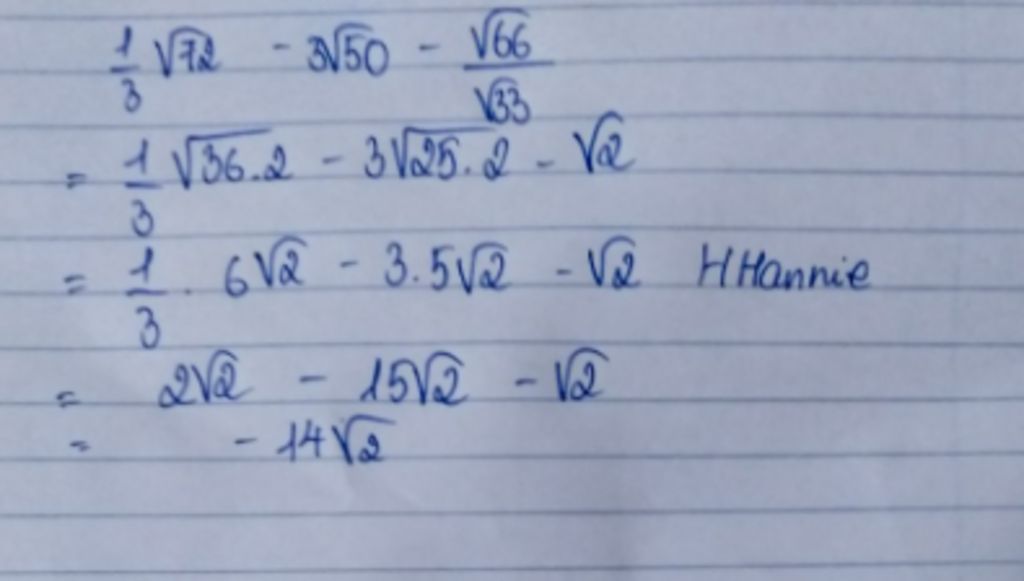 1/3 √72 - 3√50 - √66/√33
= 1/3 √36.2 - 3√25.2 - √2
= 1/3 . 6√2 - 3.5√2 - √2 HHannie
= 2√2 - 15√2 - √2
= - 14√2